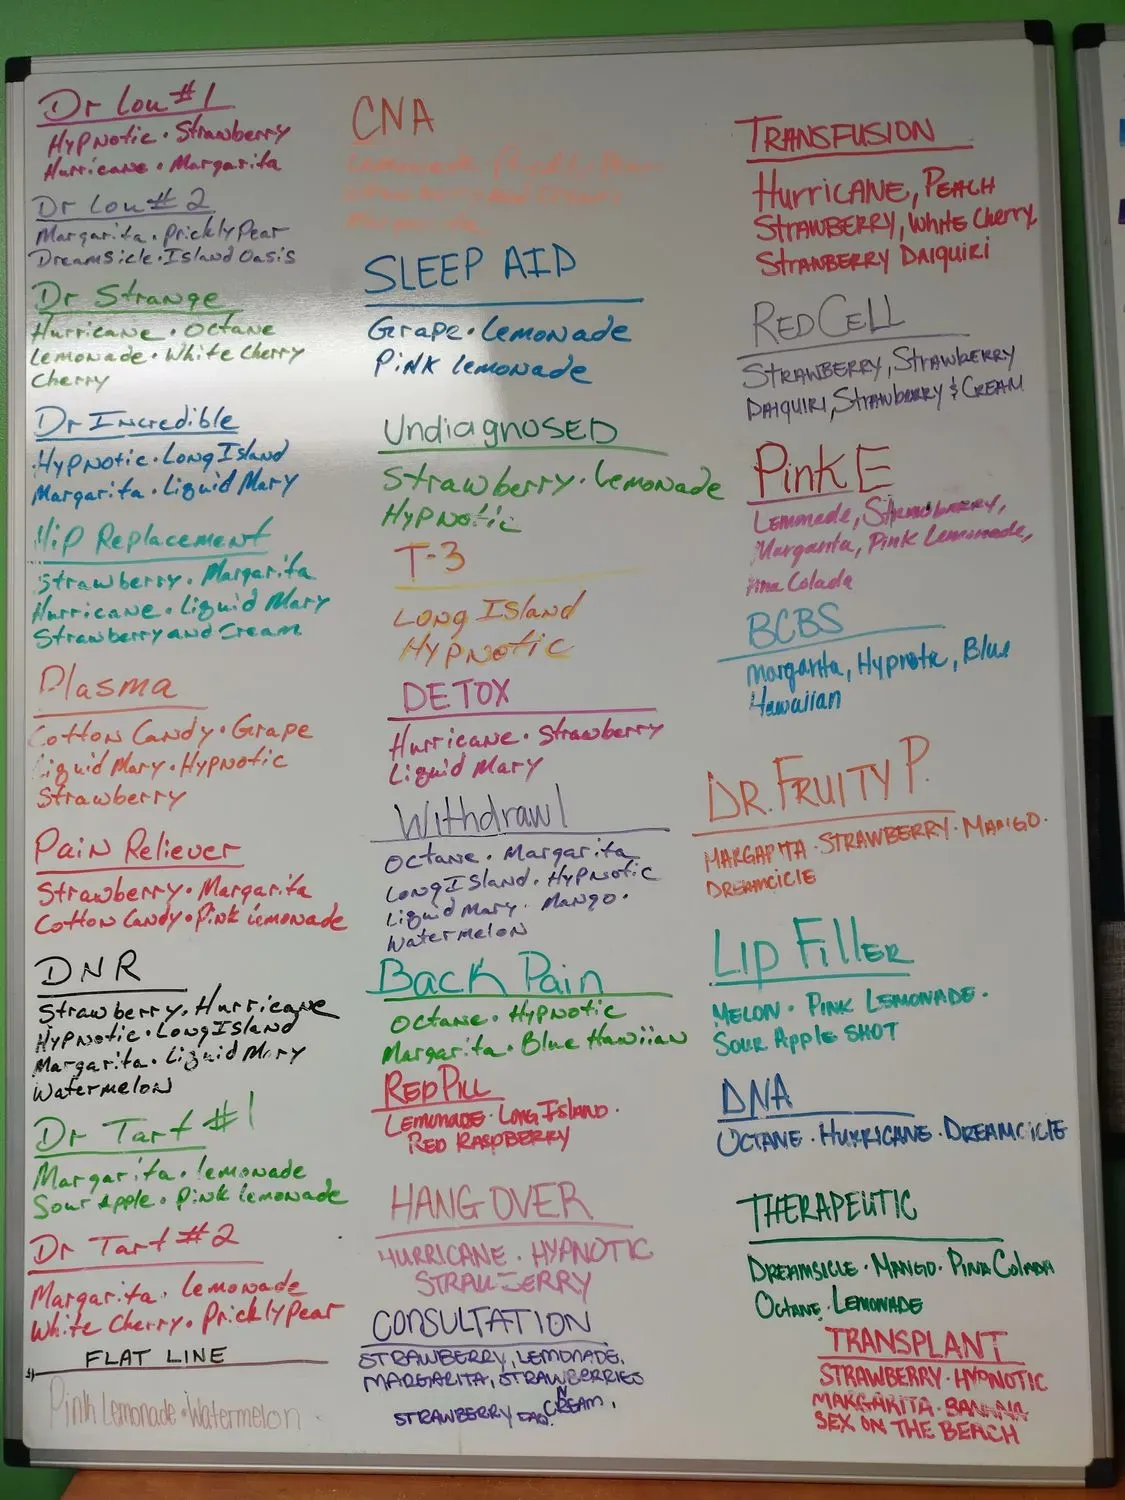 Dr Lou #1
Hypnotic · Strawberry
Hurricane · Margarita
Dr Lou # 2
Margarita · Prickly Pear
Dreamsicle · Island Oasis
Dr Strange
Hurricane · Octane
Lemonade · White Cherry
Cherry
Dr Incredible
Hypnotic · Long Island
Margarita · Liquid Mary
Hip Replacement
Strawberry · Margarita
Hurricane · Liquid Mary
Strawberry and Cream
Plasma
Cotton Candy · Grape
Liquid Mary · Hypnotic
Strawberry
Pain Reliever
Strawberry · Margarita
Cotton Candy · Pink Lemonade
DNR
Strawberry · Hurricane
Hypnotic · Long Island
Margarita · Liquid Mary
Watermelon
Dr Tart #1
Margarita · Lemonade
Sour Apple · Pink Lemonade
Dr Tart #2
Margarita · Lemonade
White Cherry · Prickly Pear
FLAT LINE
Pink Lemonade · Watermelon
CNA
Lemonade Prickly Pear
Strawberry and Cream
Margarita
SLEEP AID
Grape · Lemonade
Pink Lemonade
Undiagnosed
Strawberry · Lemonade
Hypnotic
T-3
Long Island
Hypnotic
DETOX
Hurricane · Strawberry
Liquid Mary
Withdrawl
Octane · Margarita
Long Island · Hypnotic
Liquid Mary · Mango ·
Watermelon
Back Pain
Octane · Hypnotic
Margarita · Blue Hawiian
RED PILL
LEMONADE · LONG ISLAND ·
RED RASPBERRY
HANG OVER
HURRICANE · HYPNOTIC
STRAWBERRY
CONSULTATION
STRAWBERRY, LEMONADE,
MARGARITA, STRAWBERRIES
N CREAM,
STRAWBERRY DAQ.
TRANSFUSION
HURRICANE, PEACH
STRAWBERRY, WHITE Cherry
STRAWBERRY DAIQUIRI
RED CELL
STRAWBERRY, STRAWBERRY
DAIQUIRI, Strawburry & CREAM
Pink E
Lemonade, Strawburry,
Margarita, Pink Lemonade,
Pina Colada
BCBS
Margarita, Hypnotic, Blue
Hawaiian
DR. FRUITY P.
MARGARITA · STRAWBERRY · MANGO ·
DREAMCICLE
LIP FILLER
MELON · PINK LEMONADE ·
SOUR APPLE SHOT
DNA
OCTANE · HURRICANE · DREAMCICLE
THERAPEUTIC
DREAMSICLE · MANGO · PINA COLADA
OCTANE · LEMONADE
TRANSPLANT
STRAWBERRY · HYPNOTIC
MARGARITA · BANANA
SEX ON THE BEACH